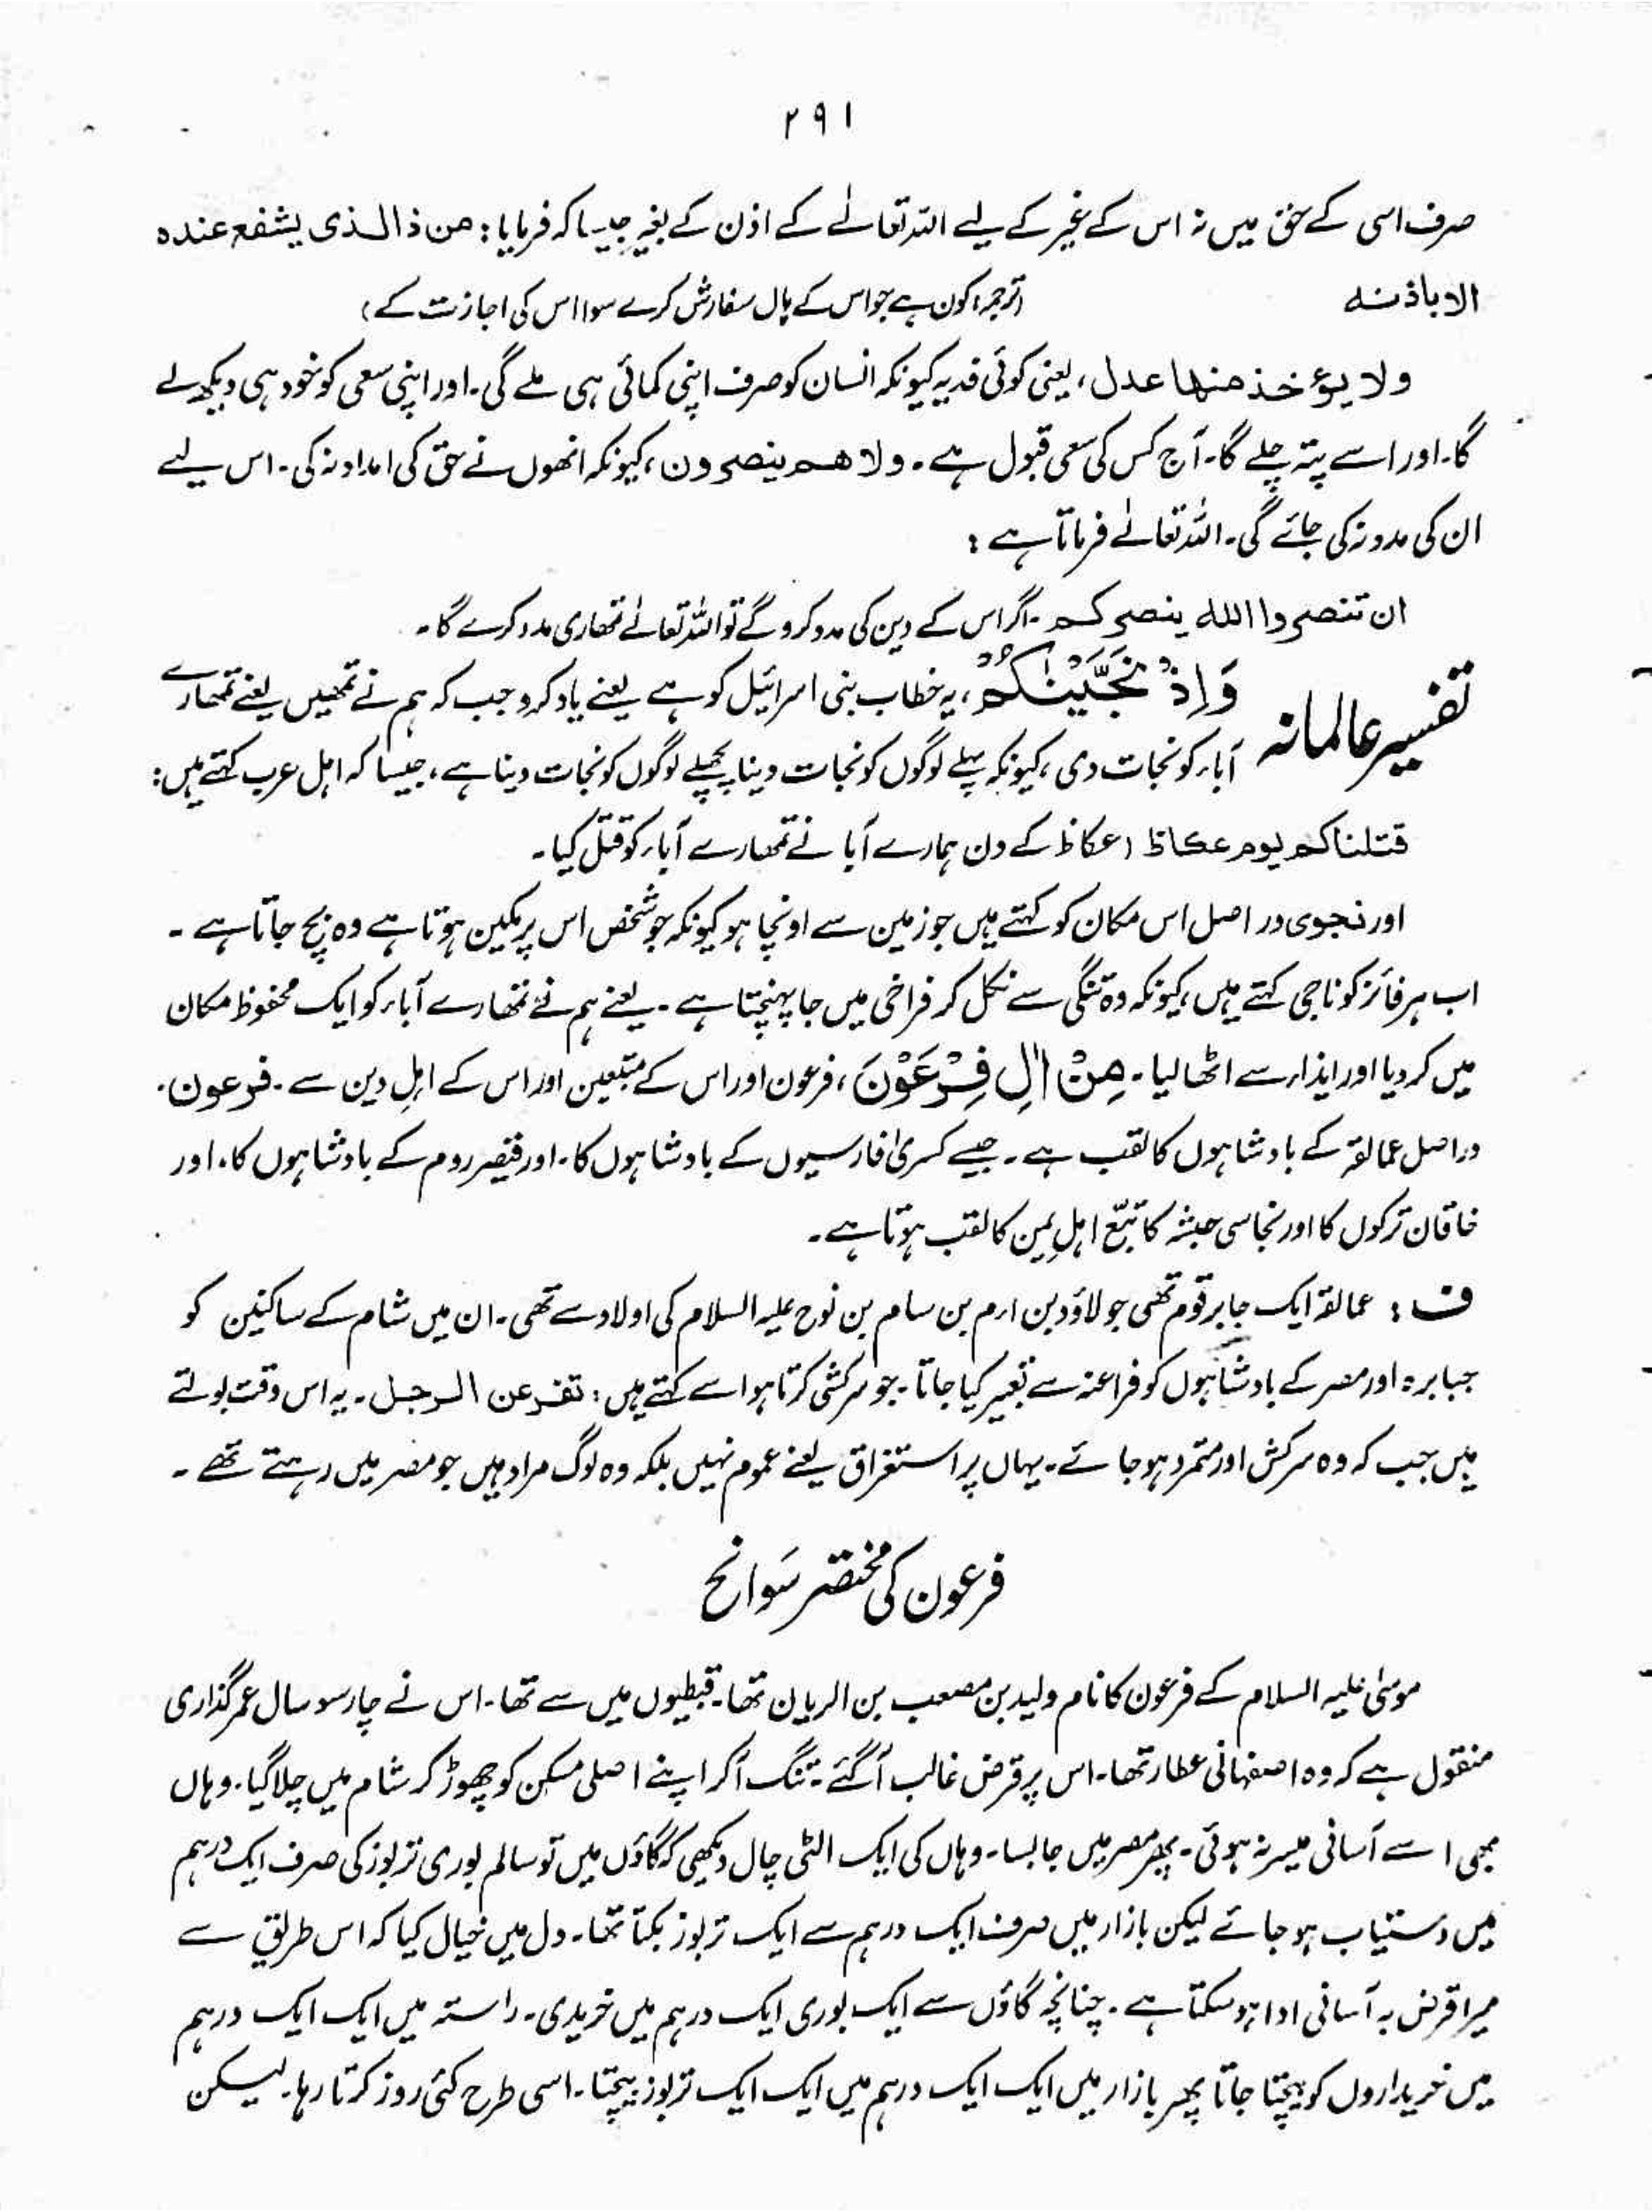 ۲۹۱
صرف اسی کے حق میں نہ اس کے غیر کے لیے اللہ تعالےٰ کے اذن کے بغیر جیسا کہ فرمایا: من ذالذی یشفع عندہ
الا باذنہ (ترجمہ) کون ہے جو اس کے ہاں سفارش کرے سوا اس کی اجازت کے)
ولا یؤخذ منھا عدل، یعنی کوئی فدیہ کیونکہ انسان کو صرف اپنی کمائی ہی ملے گی۔ اور اپنی سعی کو خود ہی دیکھ لے
گا۔ اور اسے پتہ چلے گا۔ آج کس کی سعی قبول ہے۔ ولا ھم ینصرون، کیونکہ انھوں نے حق کی امداد نہ کی۔ اس لیے
ان کی مدد نہ کی جائے گی۔ اللہ تعالےٰ فرماتا ہے :
ان تنصروا اللہ ینصرکم۔ اگر اس کے دین کی مدد کرو گے تو اللہ تعالےٰ تمھاری مدد کرے گا۔
تفسیر عالمانہ وَاِذْ نَجَّیْنٰکُمْ، یہ خطاب بنی اسرائیل کو ہے یعنے یاد کرو جب کہ ہم نے تمھیں یعنے تمھارے
آباء کو نجات دی، کیونکہ پہلے لوگوں کو نجات دینا پچھلے لوگوں کو نجات دینا ہے، جیسا کہ اہل عرب کہتے ہیں:
قتلناکم یوم عکاظ (عکاظ کے دن ہمارے آبا نے تمھارے آباء کو قتل کیا۔
اور نجوی در اصل اس مکان کو کہتے ہیں جو زمین سے اونچا ہو کیونکہ جو شخص اس پر مکین ہوتا ہے وہ بچ جاتا ہے ۔
اب ہر فائز کو ناجی کہتے ہیں، کیونکہ وہ تنگی سے نکل کر فراخی میں جا پہنچتا ہے۔ یعنے ہم نے تمھارے آباء کو ایک محفوظ مکان
میں کر دیا اور ایذاء سے اٹھا لیا۔ مِنْ اٰلِ فِرْعَوْنَ، فرعون اور اس کے متبعین اور اس کے اہلِ دین سے۔ فرعون۔
دراصل عمالقہ کے بادشاہوں کا لقب ہے۔ جیسے کسریٰ فارسیوں کے بادشاہوں کا۔ اور قیصر روم کے بادشاہوں کا، اور
خاقان ترکوں کا اور نجاسی حبشہ کا تبّع اہلِ یمن کا لقب ہوتا ہے۔
ف : عمالقہ ایک جابر قوم تھی جو لاؤد بن ارم بن سام بن نوح علیہ السلام کی اولاد سے تھی۔ ان میں شام کے ساکنین کو
جبابرہ اور مصر کے بادشاہوں کو فراعنہ سے تعبیر کیا جاتا۔ جو سرکشی کرتا ہو اسے کہتے ہیں: تفرعن الرجل۔ یہ اس وقت بولتے
ہیں جب کہ وہ سرکش اور متمرد ہو جائے۔ یہاں پر استغراق یعنے عموم نہیں بلکہ وہ لوگ مراد ہیں جو مصر میں رہتے تھے ۔
فرعون کی مختصر سَوانح
موسیٰ علیہ السلام کے فرعون کا نام ولید بن مصعب بن الریان تھا۔ قبطیوں میں سے تھا۔ اس نے چار سو سال عمر گذاری
منقول ہے کہ وہ اصفہانی عطار تھا۔ اس پر قرض غالب آ گئے۔ تنگ آ کر اپنے اصلی مسکن کو چھوڑ کر شام میں چلا گیا۔ وہاں
بھی اسے آسانی میسر نہ ہوئی۔ پھر مصر میں جا بسا۔ وہاں کی ایک الٹی چال دیکھی کہ گاؤں میں تو سالم بوری تربوز کی صرف ایک درہم
میں دستیاب ہو جائے لیکن بازار میں صرف ایک درہم سے ایک تربوز بکتا تھا۔ دل میں خیال کیا کہ اس طریق سے
میرا قرض بہ آسانی ادا ہو سکتا ہے۔ چنانچہ گاؤں سے ایک بوری ایک درہم میں خریدی۔ راستہ میں ایک ایک درہم
میں خریداروں کو بیچتا جاتا پھر بازار میں ایک ایک درہم میں ایک ایک تربوز بیچتا۔ اسی طرح کئی روز کرتا رہا۔ لیکن